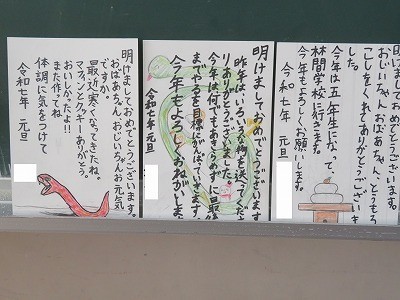 明けましておめでとうございます
おじいちゃんおばあちゃん、とうもろ
こしをくれてありがとうございま
した。
今年は五年生になって
林間学校に行きます。
今年もよろしくお願いします。
令和七年 元旦
明けましておめでとうございます
昨年は、いろんな物を送ってくだ
りありがとうございました。
今年は何でもあきらめずに最後
までやるを目標にがんばっています。
今年もよろしくおねがいしま
令和七年 元旦
明けましておめでとうございます。
おばあちゃん、おじいちゃんお元気
ですか。
最近寒くなってきたね。
マフィンとクッキーありがとう。
おいしかったよ!!
また作ってね
体調に気をつけて
令和七年 元旦